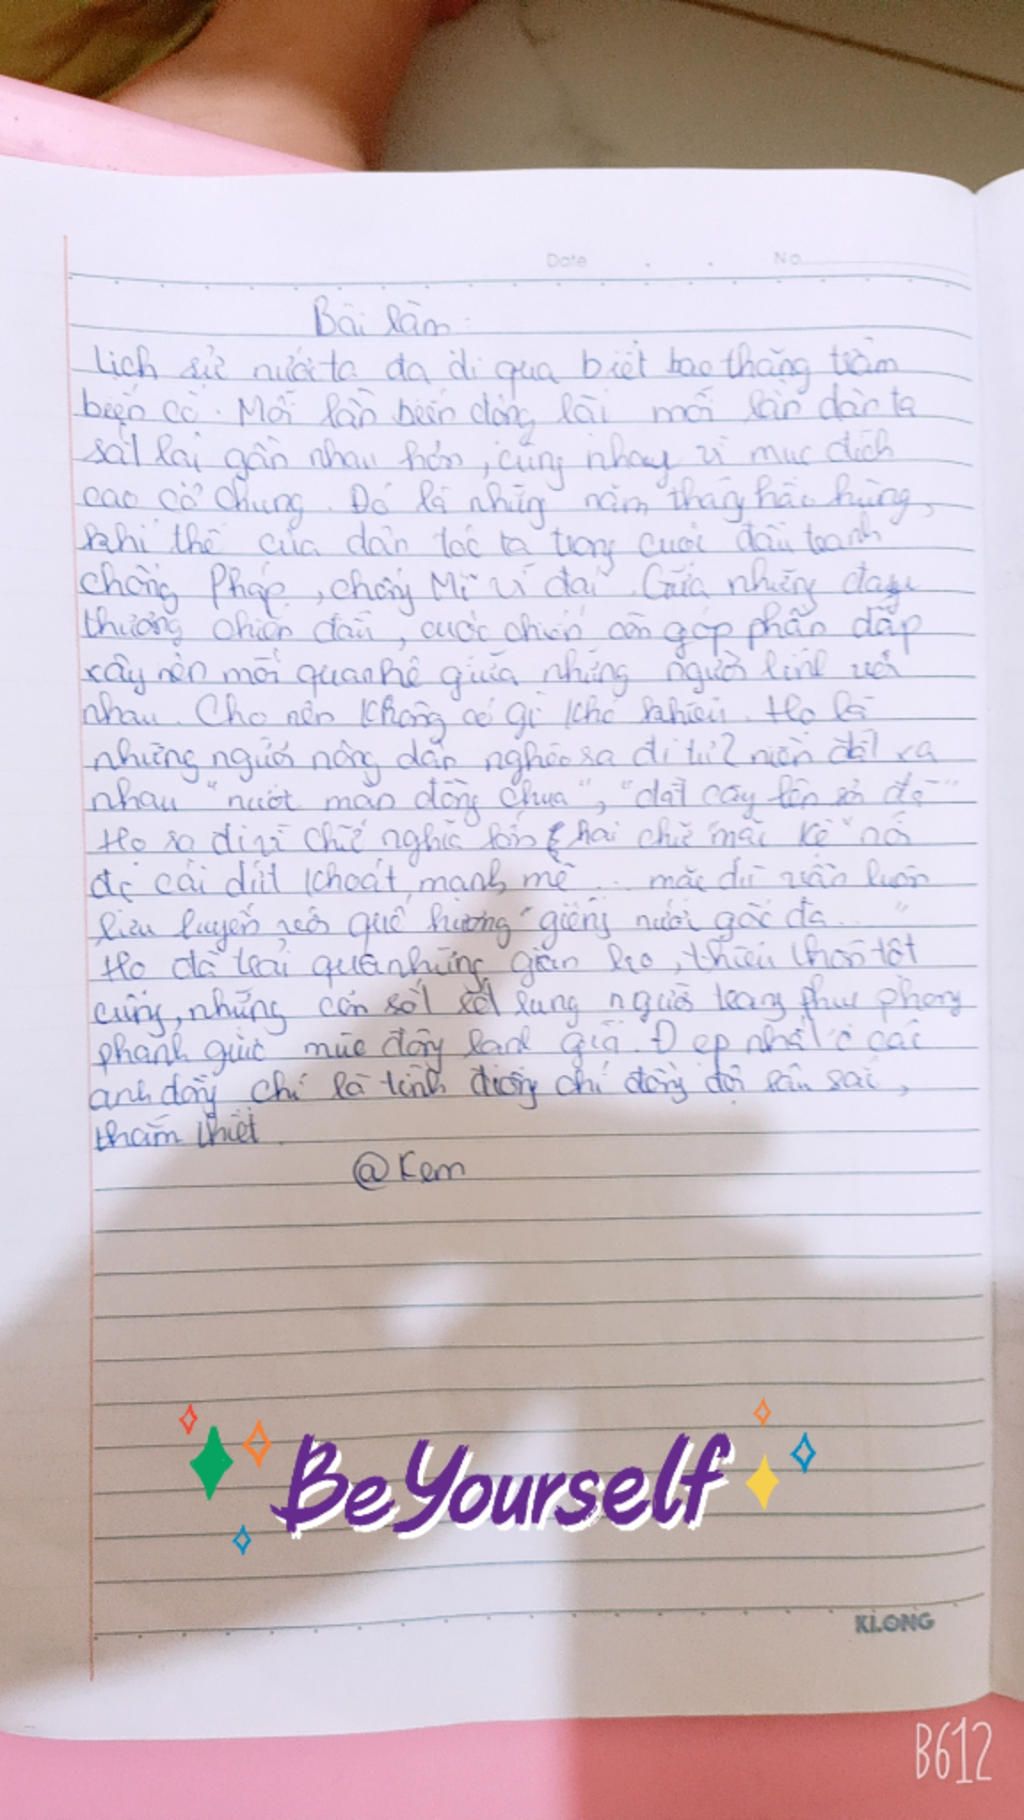 Date No
Bài làm:
Lịch sử nước ta đa đi qua biết bao thăng trầm
biến cố. Mỗi lần biến động lãi mỗi lần dân ta
sát lại gần nhau hơn, cùng nhay vì muc đích
cao cả chung. Đó là những năm tháng hào hùng,
khí thế của dân tôc ta trong cuôi đấu tranh
chống Pháp, chống Mĩ vĩ đai. Giữa những đau
thương chiến đấu, cuộc chiến còn góp phần đắp
xây nên mối quan hê giữa những người lính với
nhau. Cho nên không có gì khó khiếu. Họ là
những người nông dân nghèo ra đi từ 2 miền đất xa
nhau "nướt măn đồng chua", "đất cày lên sỏi đá"
Họ ra đi vì chữ nghĩa lớn hai chữ "mặc kệ" nó
đc cái dứt khoát, manh mẽ ... mặc dù vẫn luôn
lưu luyến với quê hương "giếng nươi gốc đa..."
Họ đã trải qua những gian lao, thiếu thốn tột
cùng, những cơn sốt rét rung người trong phuc phong
phanh giữc mùc đông lanh giá. Đ ẹp nhất ở các
anh đồng chí là tình đương chí đồng đội sâu sai,
thắm thiết.
@Kem
Be Yourself
KLONG
B612